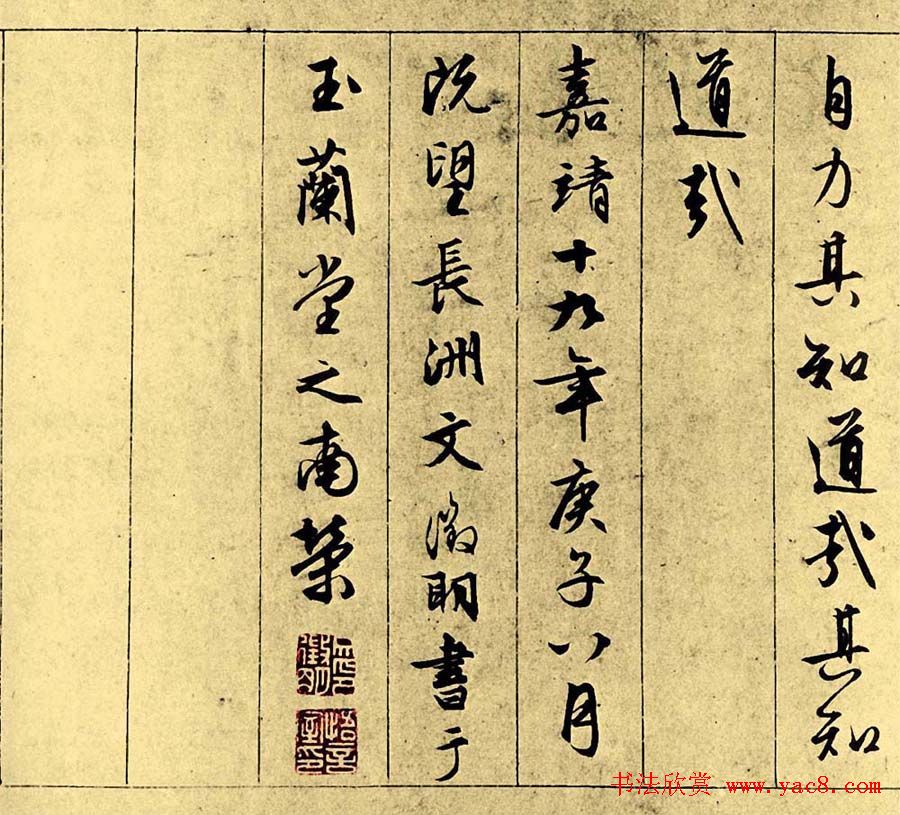 自力其知道哉其知
道哉
嘉靖十九年庚子八月
既望長洲文徵明書于
玉蘭堂之南榮
書法欣赏 www.yac8.com